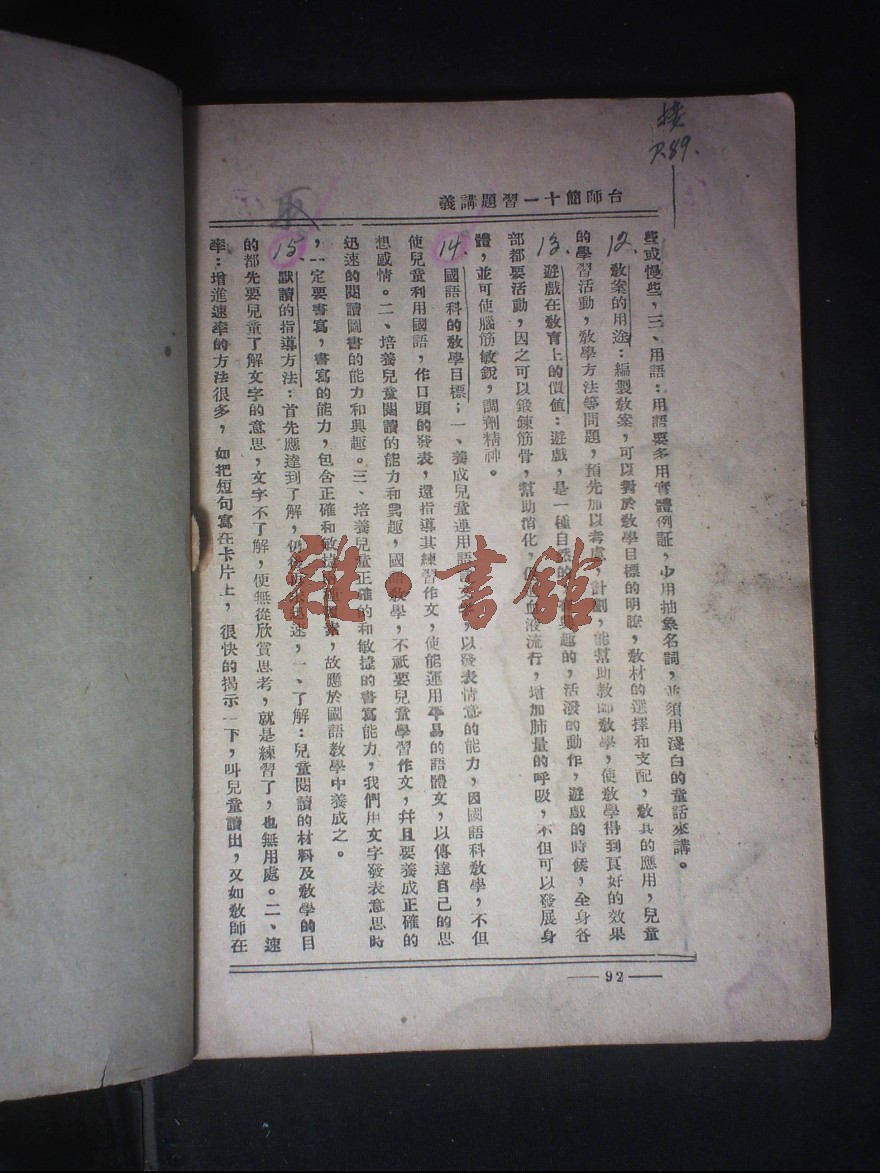 接
P.89.
台師簡十一習題講義
些或慢些，三、用語：用語要多用實體例証，少用抽象名詞，並須用淺白的童話來講。
12. 教案的用途：編製教案，可以對於教學目標的明瞭，教材的選擇和支配，教具的應用，兒童
的學習活動，教學方法等問題，預先加以考慮，計劃，能幫助教師教學，使教學得到良好的效果
13. 遊戲在教育上的價值：遊戲，是一種自然的，有興趣的，活潑的動作，遊戲的時候，全身各
部都要活動，因之可以鍛鍊筋骨，幫助消化，血液流行，增加肺量的呼吸，不但可以發展身
體，並可使腦筋敏銳，調劑精神。
14. 國語科的教學目標；一、養成兒童運用語言文字，以發表情意的能力，因國語科教學，不但
使兒童利用國語，作口頭的發表，還指導其練習作文，使能運用平易的語體文，以傳達自己的思
想感情。二、培養兒童閱讀的能力和興趣，國語教學，不祇要兒童學習作文，幷且要養成正確的
迅速的閱讀圖書的能力和興趣。三、培養兒童正確的和敏捷的書寫能力，我們用文字發表意思時
，一定要書寫，書寫的能力，包含正確和敏捷素，故應於國語教學中養成之。
15. 默讀的指導方法：首先應達到了解，迅速，一、了解：兒童閱讀的材料及教學的目
的都先要兒童了解文字的意思，文字不了解，便無從欣賞思考，就是練習了，也無用處。二、速
率：增進速率的方法很多，如把短句寫在卡片上，很快的揭示一下，叫兒童讀出，又如教師在
92
雜・書館